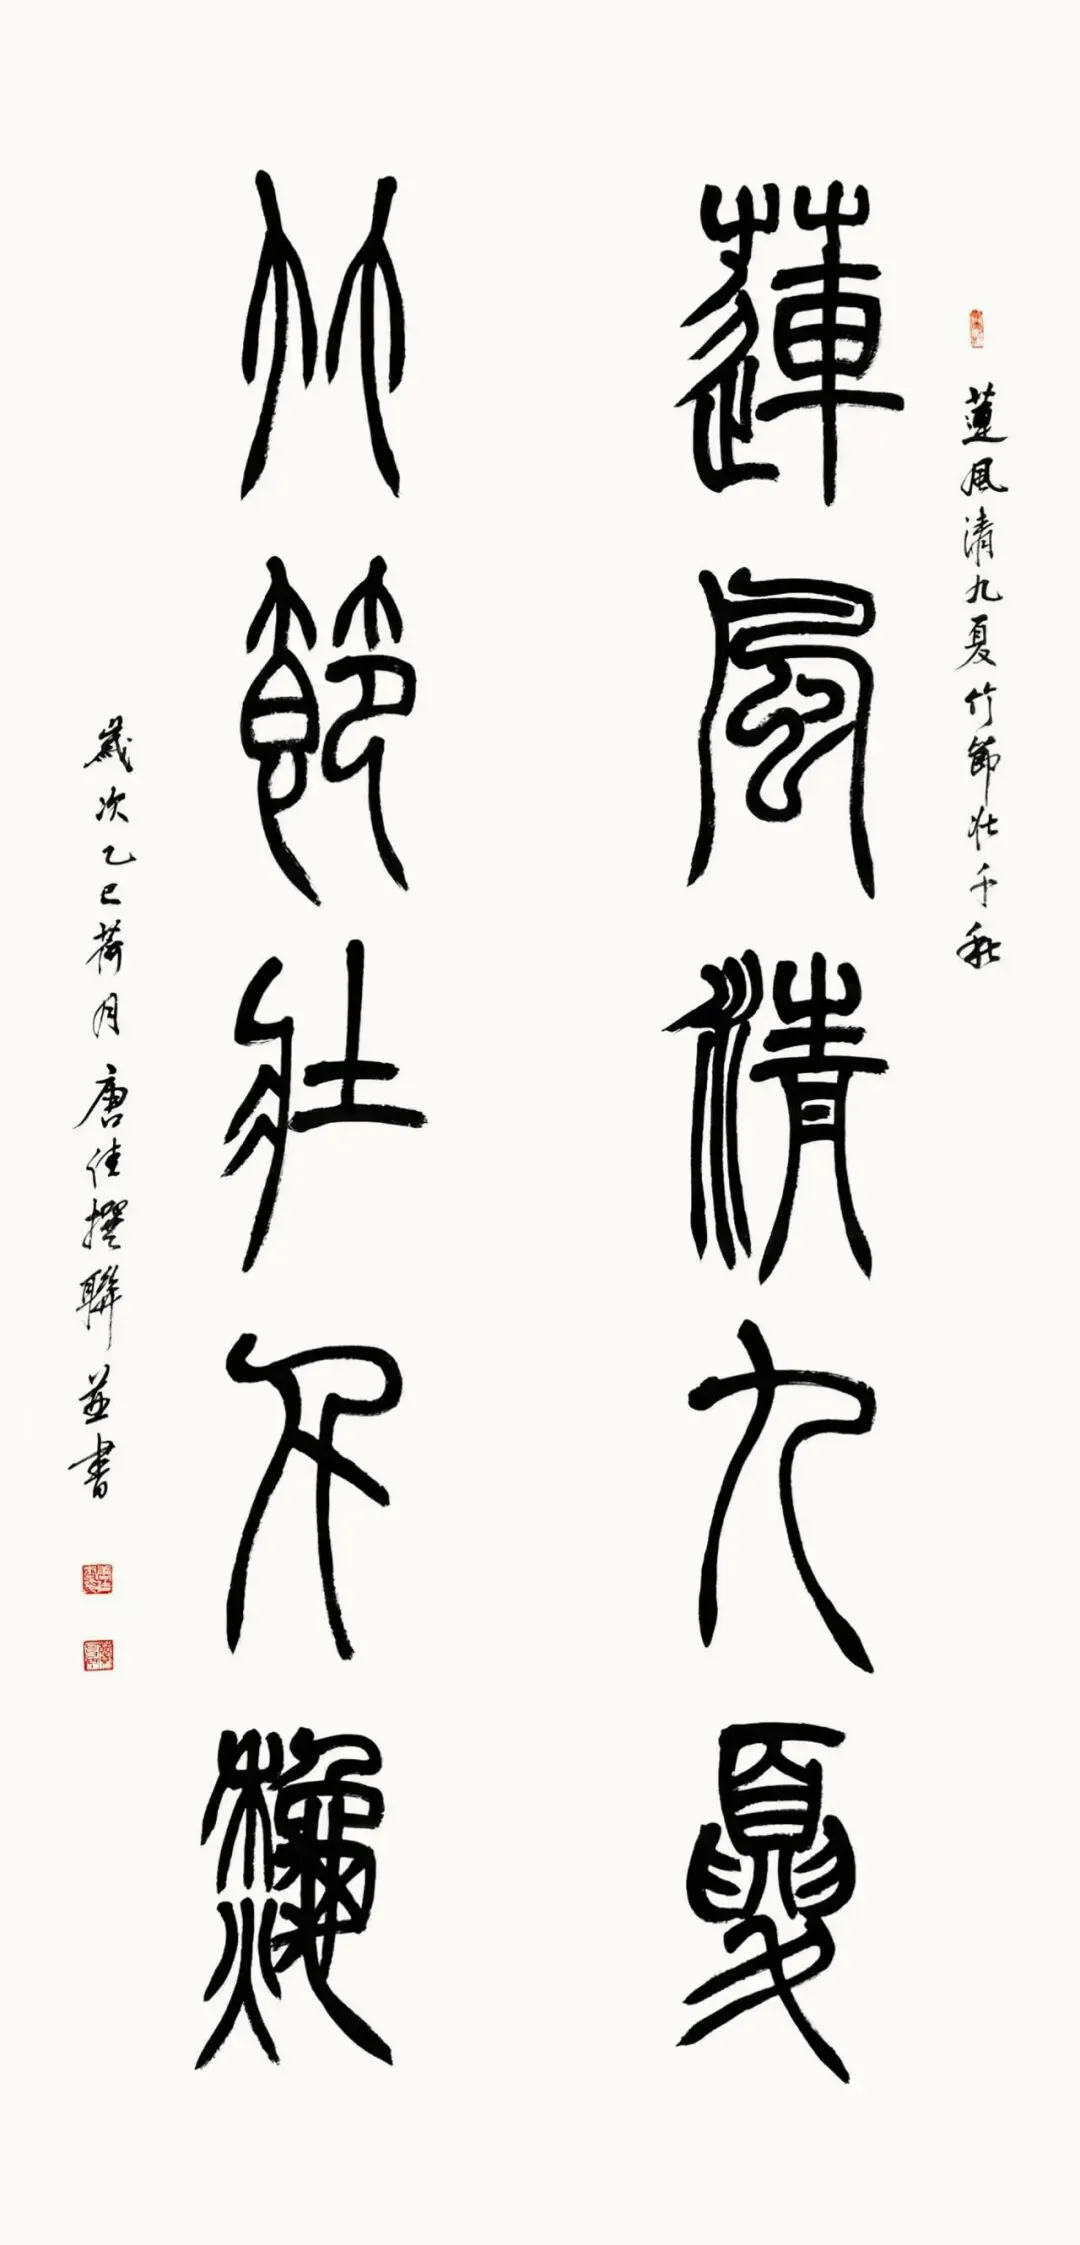 蓮風清九夏竹節壯千秋
蓮風清九夏
竹節壯千秋
歲次乙巳荷月唐佳撰聯並書